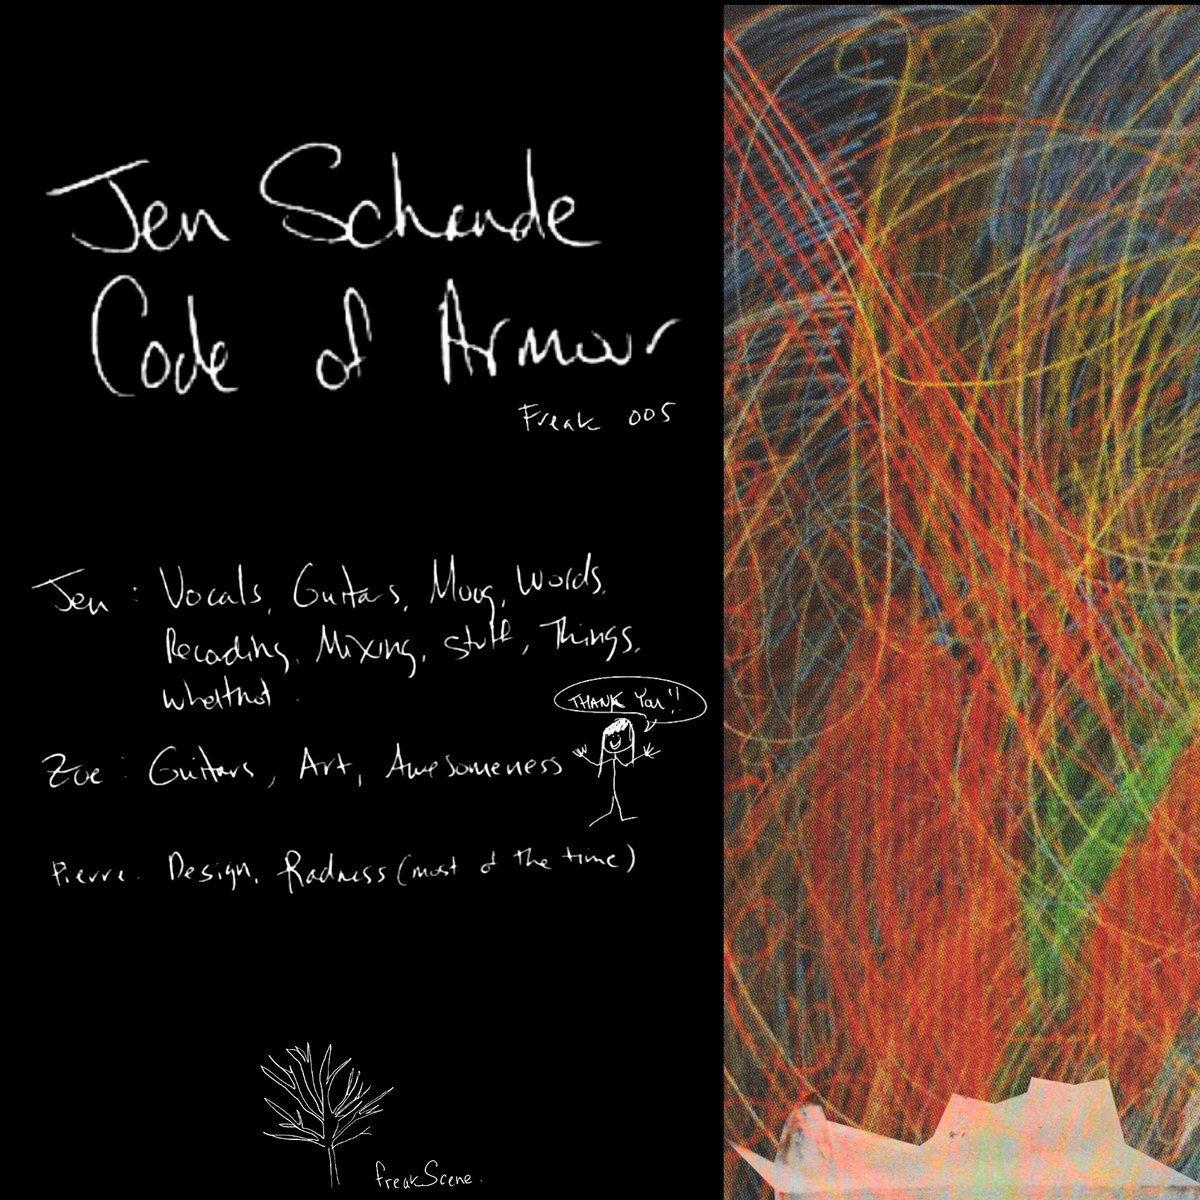 Jen Schande
Code of Armour
Freak 005
Jen: Vocals, Guitars, Moog, Words,
Recording, Mixing, Stuff, Things,
Whatnot.
THANK YOU!!
Zoe: Guitars, Art, Awesomeness
Pierre: Design, Radness (most of the time)
freakScene.